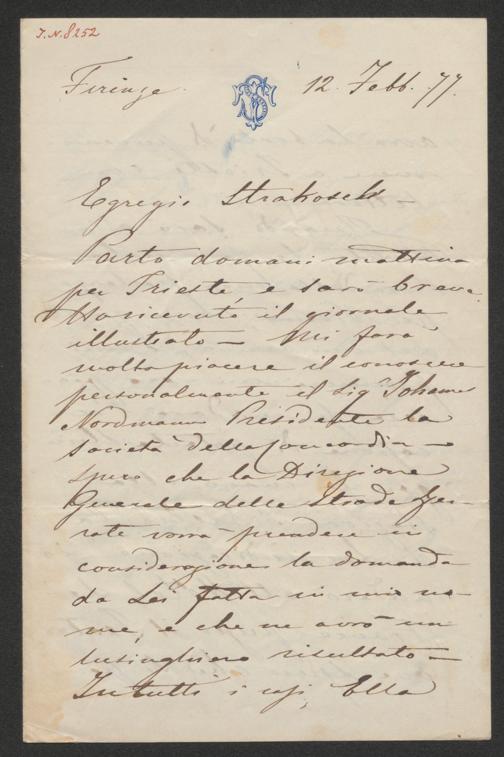 J.N. 8252
Firenze. 12. Febb. 77.
Egregio Strakosch
Parto domani mattina
per Trieste e sarò brava
Ho ricevuto il giornale
illustrato — Mi farà
molto piacere il conoscere
personalmente il Sig Johannes
Nordmann Presidente la
società della Concordia —
spero che la Direzione
Generale delle Strade Fer-
rate vorrà prendere in
considerazione la domanda
da Lei fatta in mio no-
me, e che ne avrò un
lusinghiero risultato —
In tutti i casi, Ella